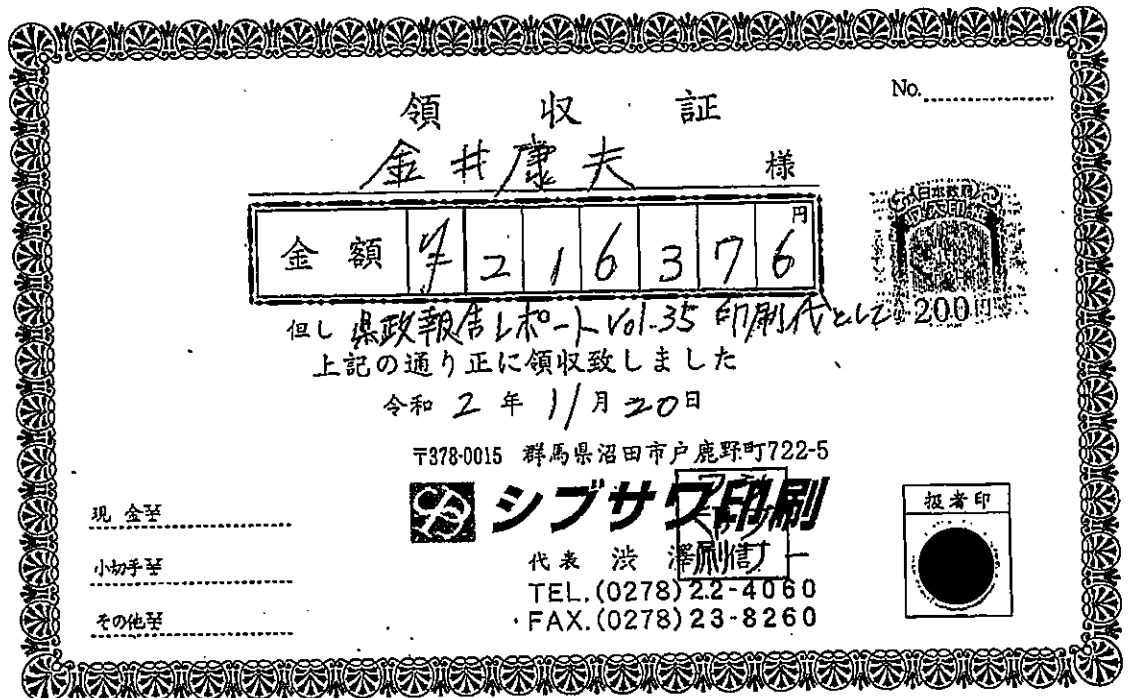 No.
領収証
金井康夫 様
金額 ¥216376円
日本政府
収入印紙
200円
但し 県政報告レポートVol.35 印刷代として
上記の通り正に領収致しました
令和2年11月20日
〒378-0015 群馬県沼田市戸鹿野町722-5
シブサワ印刷
代表 渋澤信一
TEL.(0278)22-4060
FAX.(0278)23-8260
現金¥
小切手¥
その他¥
扱者印